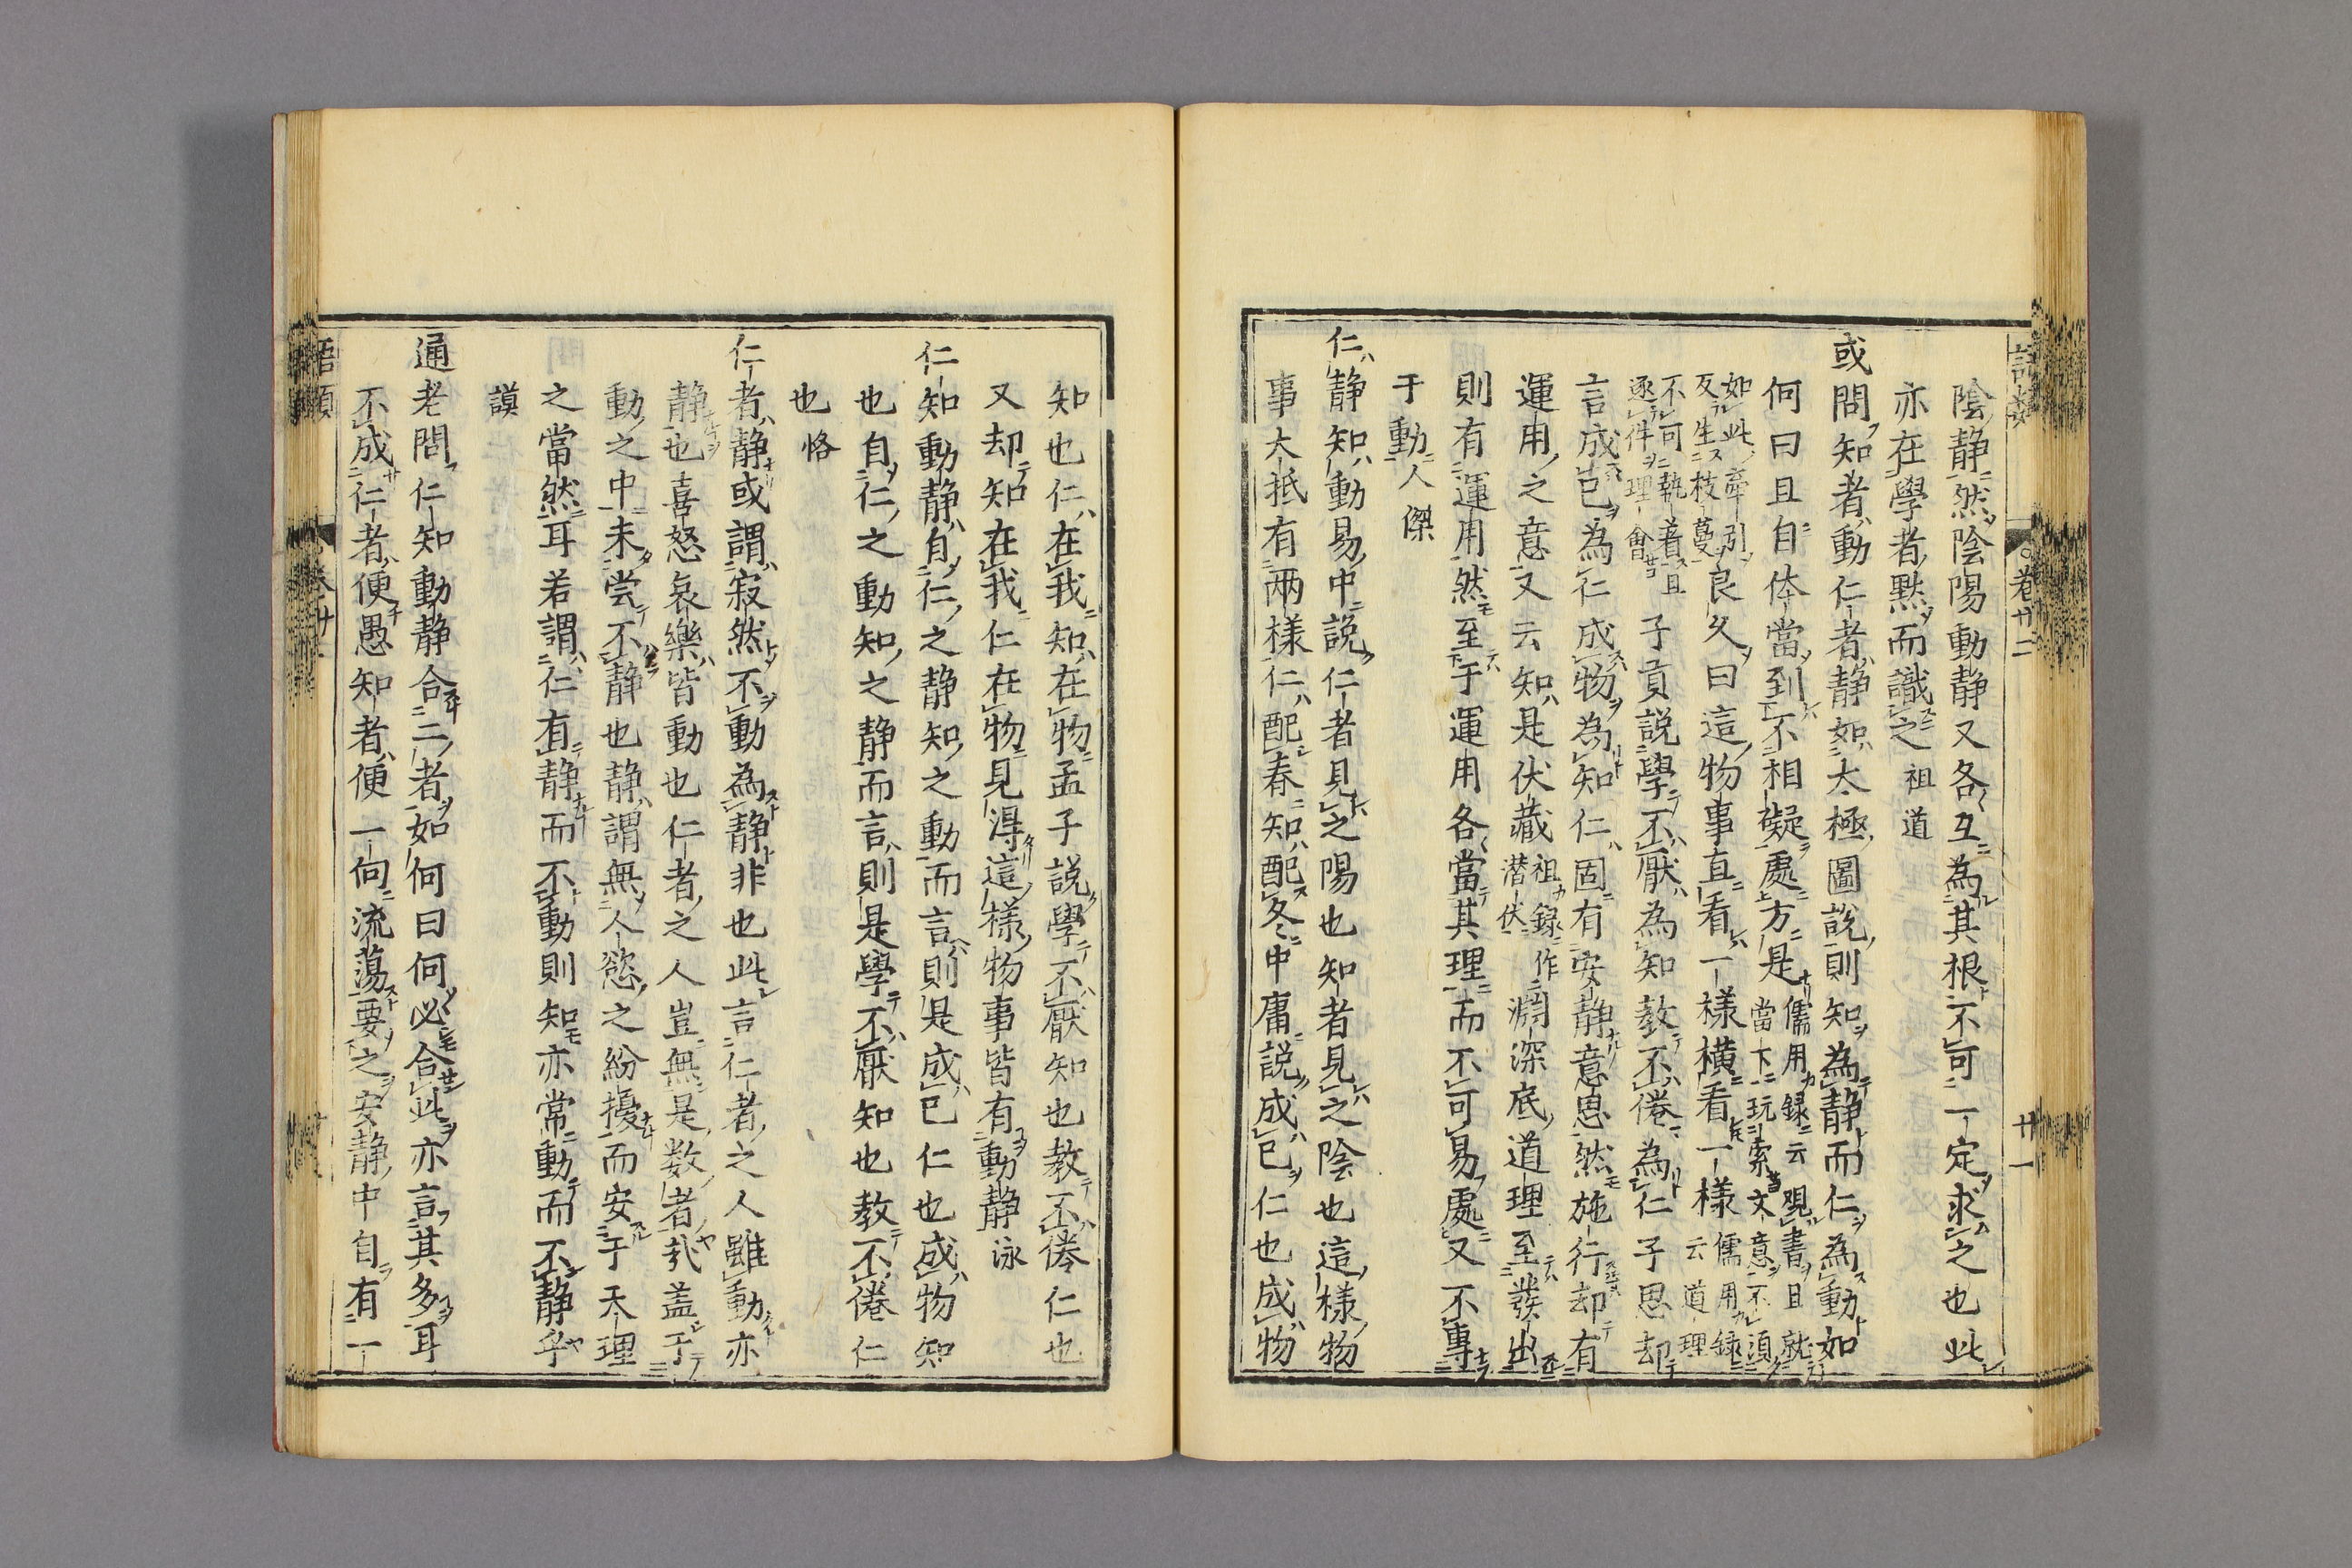 陰静然陰陽動静又各互為其根不可一定求之也此
亦在學者黙而識之祖道
或問知者動仁者静如太極圖說則知為静而仁為動如
何曰且自体當到不相礙處方是儒用録云觀書且就
當下玩索文意不須
如此牽引
反生枝蔓良乆曰這物事直看一樣横看一樣儒用録
云道理
不可執着且
逐件理會子貢説學不厭為知教不倦為仁子思却
言成己為仁成物為知仁固有安静意思然施行却有
運用之意又云知是伏藏祖録作
潜伏淵深底道理至發出
則有運用然至于運用各當其理而不可易處又不專
于動人傑
仁静知動易中説仁者見之陽也知者見之陰也這樣物
事大抵有兩樣仁配春知配冬中庸説成己仁也成物
知也仁在我知在物孟子説學不厭知也教不倦仁也
又却知在我仁在物見得這樣物事皆有動静泳
仁知動静自仁之静知之動而言則是成己仁也成物知
也自仁之動知之静而言則是學不厭知也教不倦仁
也恪
仁者静或謂寂然不動為静非也此言仁者之人雖動亦
静也喜怒哀樂皆動也仁者之人豈無是数者哉盖于
動之中未嘗不静也静謂無人慾之紛擾而安于天理
之當然耳若謂仁有静而不動則知亦常動而不静乎
謨
通老問仁知動静合二者如何曰何必合此亦言其多耳
不成仁者便愚知者便一向流蕩要之安静中自有一
語類
卷廿二
廿一